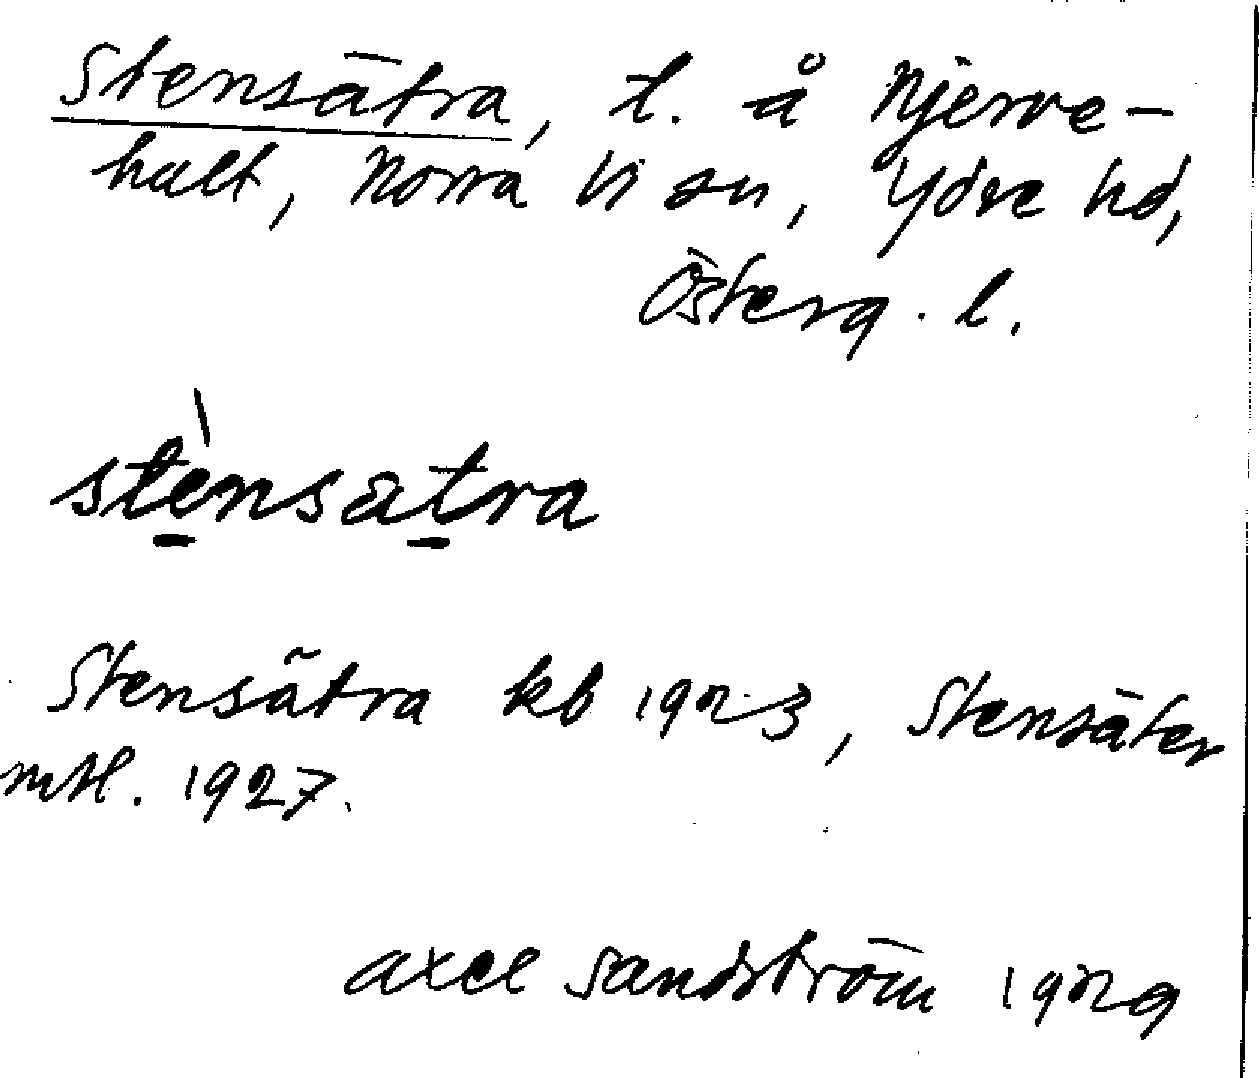 Stensätra, t. å Njerve-
hult, Norra Vi sn, Ydre hd,
Österg. l.
stènsatra
Stensätra kb 1923, Stensäter
mtl. 1927.
Axel Sandström 1929